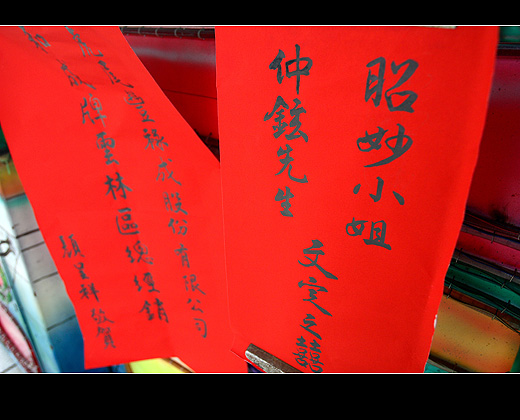 昭妙小姐
仲鉉先生
文定之囍
股份有限公司
牌雲林區總經銷
敬賀